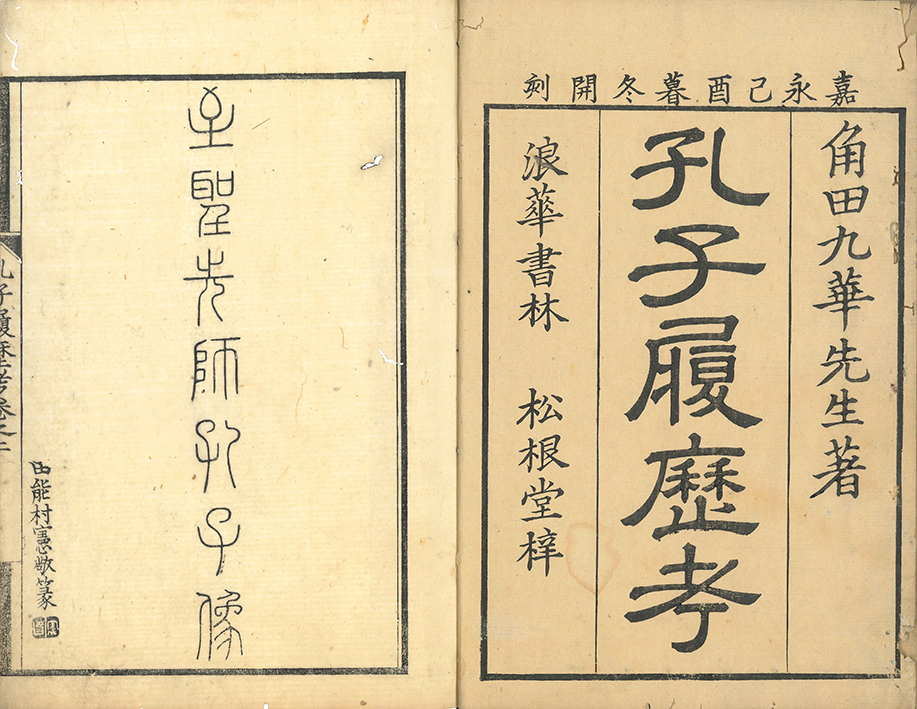 嘉永己酉暮冬開刻
角田九華先生著
孔子履歴考
浪華書林 松根堂梓
至聖先師孔子像
田能村憲敬篆
孔子履歴考巻之上